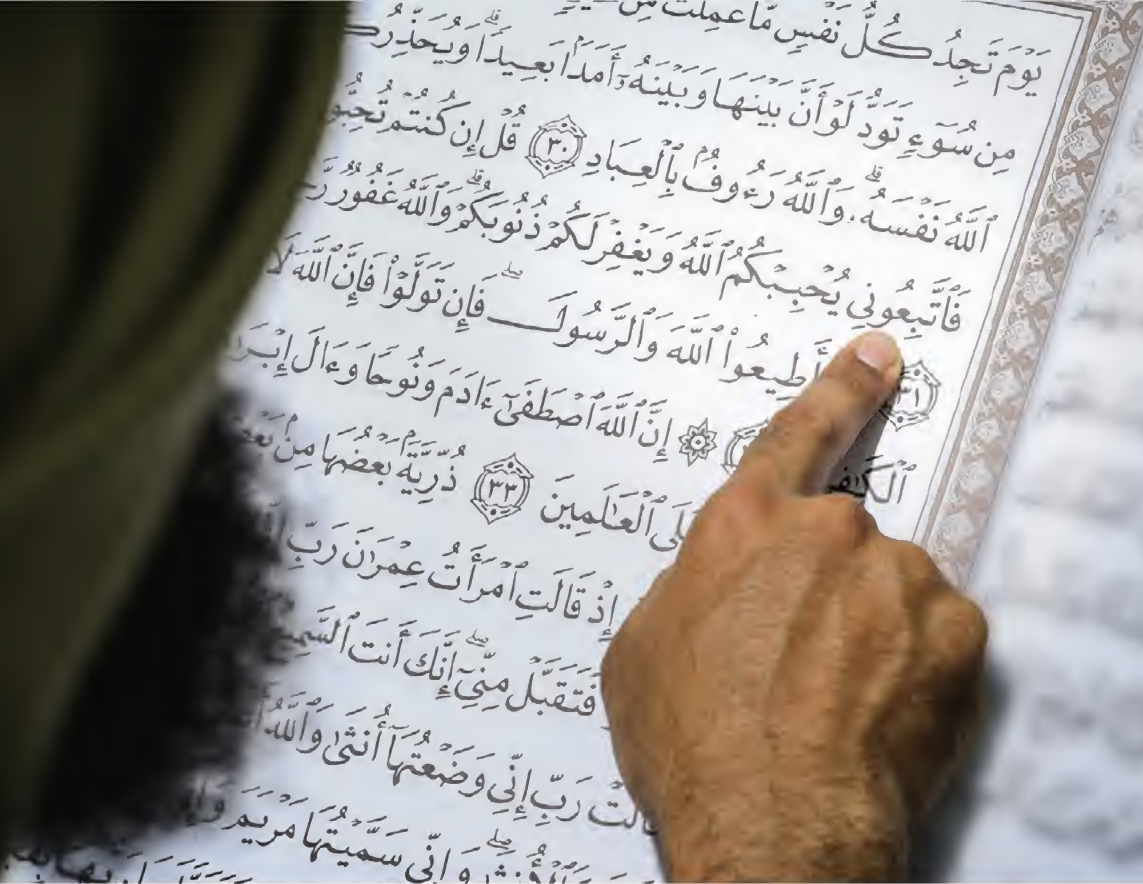 يَوْمَ تَجِدُ كُلُّ نَفْسٍ مَّا عَمِلَتْ مِنْ
مِن سُوٓءٍ تَوَدُّ لَوْ أَنَّ بَيْنَهَا وَبَيْنَهُۥٓ أَمَدَۢا بَعِيدًاۗ وَيُحَذِّرُكُ
ٱللَّهُ نَفْسَهُۥۗ وَٱللَّهُ رَءُوفُۢ بِٱلْعِبَادِ ٣٠ قُلْ إِن كُنتُمْ تُحِبُّو
فَٱتَّبِعُونِي يُحْبِبْكُمُ ٱللَّهُ وَيَغْفِرْ لَكُمْ ذُنُوبَكُمْۗ وَٱللَّهُ غَفُورٌ رَّ
٣١ أَطِيعُوا۟ ٱللَّهَ وَٱلرَّسُولَۖ فَإِن تَوَلَّوْا۟ فَإِنَّ ٱللَّهَ لَا
ٱلْكَٰفِ إِنَّ ٱللَّهَ ٱصْطَفَىٰٓ ءَادَمَ وَنُوحًا وَءَالَ إِبْرَ
لَى ٱلْعَٰلَمِينَ ٣٣ ذُرِّيَّةَۢ بَعْضُهَا مِنۢ بَعْ
إِذْ قَالَتِ ٱمْرَأَتُ عِمْرَٰنَ رَبِّ
فَتَقَبَّلْ مِنِّيٓۖ إِنَّكَ أَنتَ ٱلسَّمِ
الَتْ رَبِّ إِنِّي وَضَعْتُهَآ أُنثَىٰ وَٱللَّهُ
وَإِنِّي سَمَّيْتُهَا مَرْيَمَ